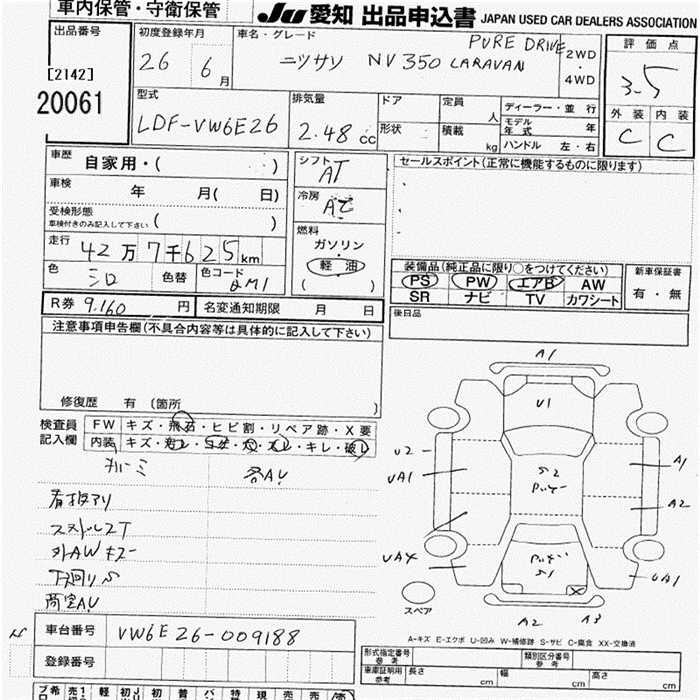 車内保管・守衛保管
JU 愛知 出品申込書 JAPAN USED CAR DEALERS ASSOCIATION
出品番号
[2142]
20061
初度登録年月
26 6月
車名・グレード
PURE DRIVE
ニッサン NV350 CARAVAN
2WD
・
4WD
評価点
3.5
外装 内装
C C
型式
LDF-VW6E26
排気量
2.48 cc
ドア
形状
定員 人
積載 kg
ディーラー・並行
モデル年式 年
ハンドル 左・右
車歴
自家用・( )
車検 年 月( 日)
受検形態
車検付きのみ記入して下さい ( )
走行 42万7千625km
色 シロ 色替 色コード QM1
シフト
AT
冷房
AC
燃料
ガソリン
・
軽油
( )
セールスポイント(正常に機能するものに限ります)
装備品(純正品に限り○をつけてください)
PS PW エアB AW
SR ナビ TV カワシート
新車保証書
有・無
後日品
R券 9,160円 名変通知期限 月 日
注意事項申告欄(不具合内容等は具体的に記入して下さい)
修復歴 有 (箇所 )
検査員
記入欄
FW キズ・飛石・ヒビ割・リペア跡・X要
内装 キズ・汚レ・コゲ・穴・スレ・キレ・破レ
各AU
看板アリ
外AWキズ
下回りS
荷室AU
A1
U1
U2
UA1
S2
A1
A2
UA4
S1
X
UA1
A2
A3
スペア
A-キズ E-エクボ U-凹み W-補修跡 S-サビ C-腐食 XX-交換済
車台番号 VW6E26-009188
登録番号
形式指定番号
参考
類別区分番号
参考
車庫証明用
参考
長さ cm 幅 cm 高さ cm